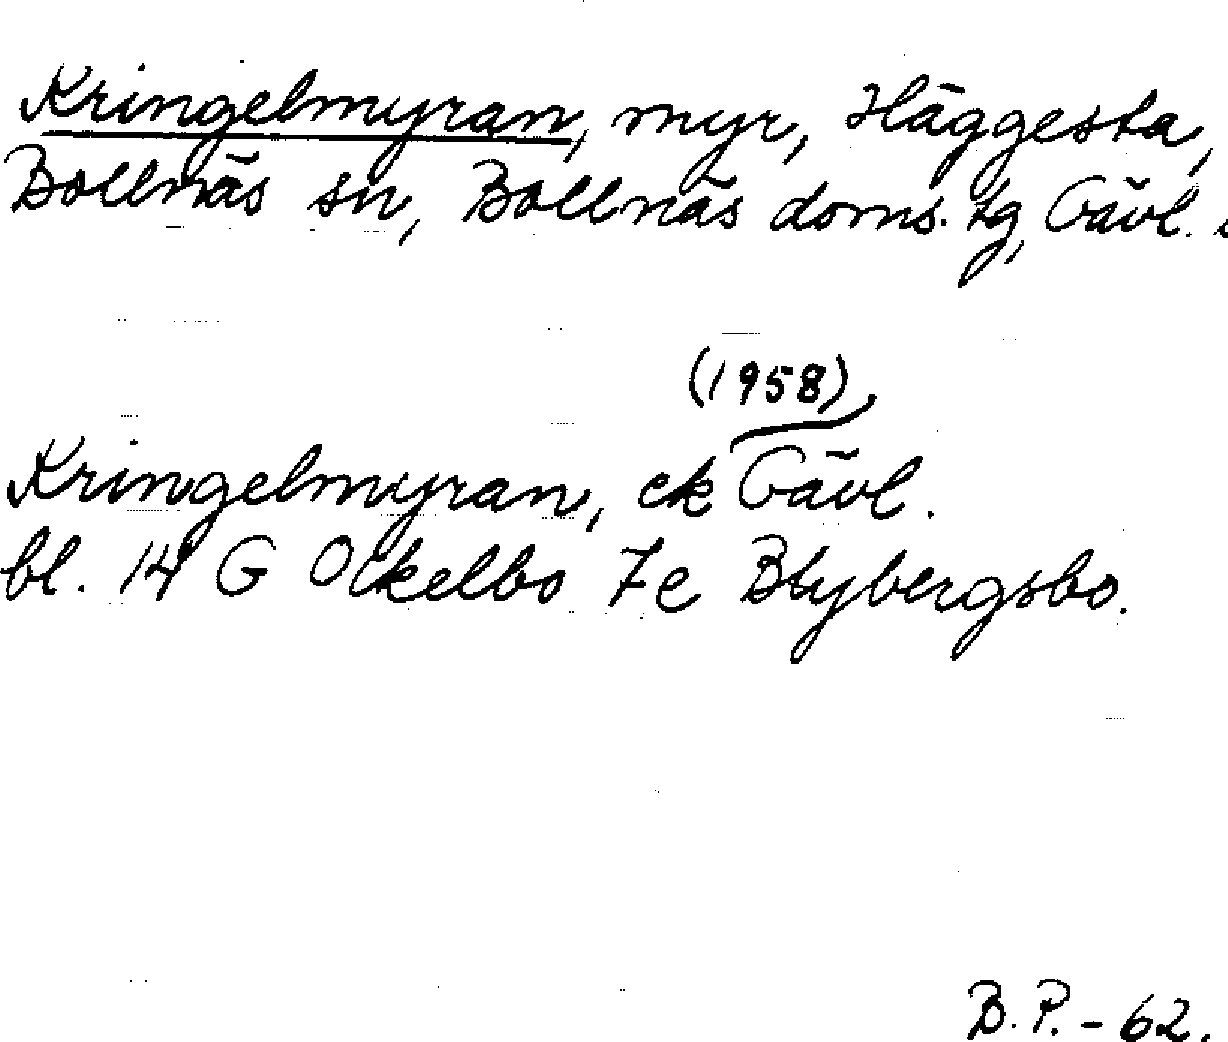 Kringelmyran, myr, Häggesta,
Bollnäs sn, Bollnäs doms. tg, Gävl.
(1958)
Kringelmyran, ek Gävl.
bl. 14 G Ockelbo 7e Blybergsbo.
B.P. - 62.